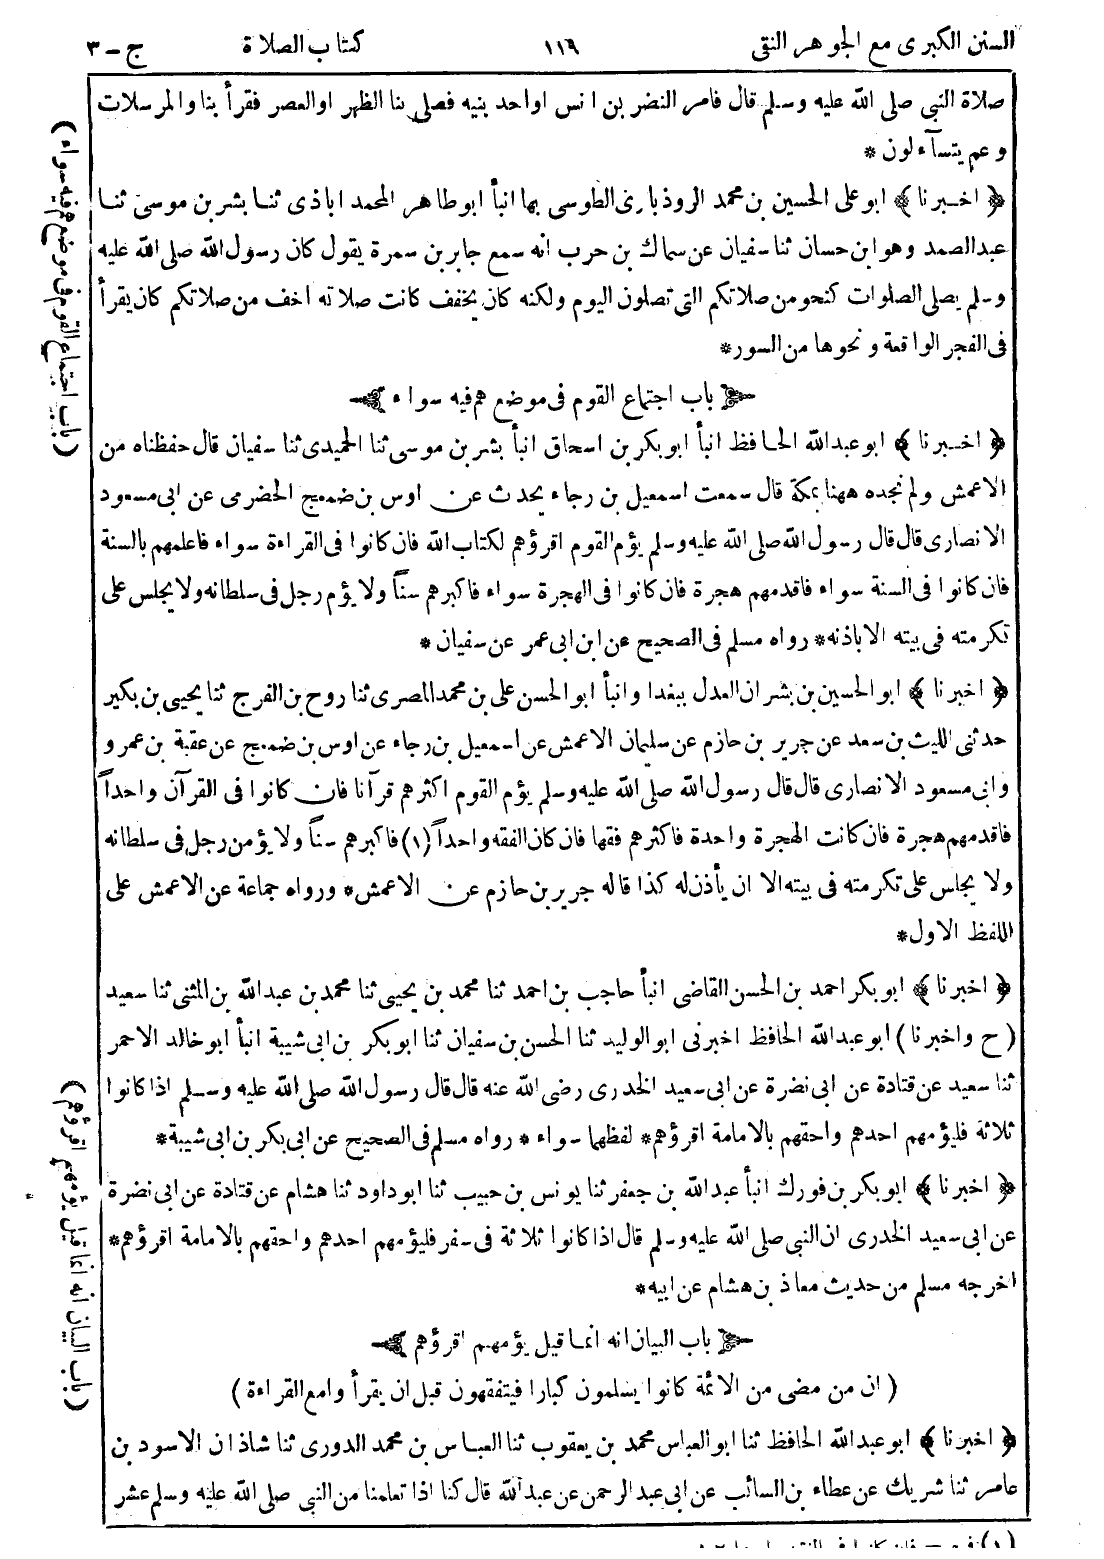 السنن الكبرى مع الجوهر النقى ١١٩ كتاب الصلاة ج - ٣
صلاة النبى صلى الله عليه وسلم قال فامر النضر بن انس او احد بنيه فصلى بنا الظهر او العصر فقرأ بنا والمرسلات
وعم يتسآءلون *
﴿ اخبرنا ﴾ ابو على الحسين بن محمد الروذبارى الطوسى بها انبأ ابو طاهر المحمد اباذى ثنا بشر بن موسى ثنا
عبد الصمد وهو ابن حسان ثنا سفيان عن سماك بن حرب انه سمع جابر بن سمرة يقول كان رسول الله صلى الله عليه
وسلم يصلى الصلوات كنحو من صلاتكم التى تصلون اليوم ولكنه كان يخفف كانت صلاته اخف من صلاتكم كان يقرأ
فى الفجر الواقعة ونحوها من السور *
باب اجتماع القوم فى موضع هم فيه سواء
﴿ اخبرنا ﴾ ابو عبد الله الحافظ انبأ ابو بكر بن اسحاق انبأ بشر بن موسى ثنا الحميدى ثنا سفيان قال حفظناه من
الاعمش ولم نجده ههنا بمكة قال سمعت اسمعيل بن رجاء يحدث عن اوس بن ضمعج الحضرمى عن ابى مسعود
الانصارى قال قال رسول الله صلى الله عليه وسلم يؤم القوم اقرؤهم لكتاب الله فان كانوا فى القراءة سواء فاعلمهم بالسنة
فان كانوا فى السنة سواء فاقدمهم هجرة فان كانوا فى الهجرة سواء فاكبرهم سناً ولا يؤم رجل فى سلطانه ولا يجلس على
تكرمته فى بيته الا باذنه * رواه مسلم فى الصحيح عن ابن ابى عمر عن سفيان *
﴿ اخبرنا ﴾ ابو الحسين بن بشران العدل ببغدا وانبأ ابو الحسن على بن محمد المصرى ثنا روح بن الفرج ثنا يحيى بن بكير
حدثنى الليث بن سعد عن جرير بن حازم عن سليمان الاعمش عن اسمعيل بن رجاء عن اوس بن ضمعج عن عقبة بن عمرو
وابى مسعود الانصارى قال قال رسول الله صلى الله عليه وسلم يؤم القوم اكثرهم قرآنا فان كانوا فى القرآن واحداً
فاقدمهم هجرة فان كانت الهجرة واحدة فاكثرهم فقها فان كان الفقه واحداً (١) فاكبرهم سناً ولا يؤمن رجل فى سلطانه
ولا يجلس على تكرمته فى بيته الا ان يأذن له كذا قاله جرير بن حازم عن الاعمش * ورواه جماعة عن الاعمش على
اللفظ الاول *
﴿ اخبرنا ﴾ ابو بكر احمد بن الحسن القاضى انبأ حاجب بن احمد ثنا محمد بن يحيى ثنا محمد بن عبد الله بن المثنى ثنا سعيد
( ح واخبرنا ) ابو عبد الله الحافظ اخبرنى ابو الوليد ثنا الحسن بن سفيان ثنا ابو بكر بن ابى شيبة انبأ ابو خالد الاحمر
ثنا سعيد عن قتادة عن ابى نضرة عن ابى سعيد الخدرى رضى الله عنه قال قال رسول الله صلى الله عليه وسلم اذا كانوا
ثلاثة فليؤمهم احدهم واحقهم بالامامة اقرؤهم * لفظهما سواء * رواه مسلم فى الصحيح عن ابى بكر بن ابى شيبة *
﴿ اخبرنا ﴾ ابو بكر بن فورك انبأ عبد الله بن جعفر ثنا يونس بن حبيب ثنا ابو داود ثنا هشام عن قتادة عن ابى نضرة
عن ابى سعيد الخدرى ان النبى صلى الله عليه وسلم قال اذا كانوا ثلاثة فى سفر فليؤمهم احدهم واحقهم بالامامة اقرؤهم *
اخرجه مسلم من حديث معاذ بن هشام عن ابيه *
باب البيان انه انما قيل يؤمهم اقرؤهم
( ان من مضى من الائمة كانوا يسلمون كبارا فيتفقهون قبل ان يقرأوا مع القراءة )
﴿ اخبرنا ﴾ ابو عبد الله الحافظ ثنا ابو العباس محمد بن يعقوب ثنا العباس بن محمد الدورى ثنا شاذان الاسود بن
عامر ثنا شريك عن عطاء بن السائب عن ابى عبد الرحمن عن عبد الله قال كنا اذا تعلمنا من النبى صلى الله عليه وسلم عشر
( باب اجتماع القوم فى موضع هم فيه سواء )
( باب البيان انه انما قيل يؤمهم اقرؤهم )